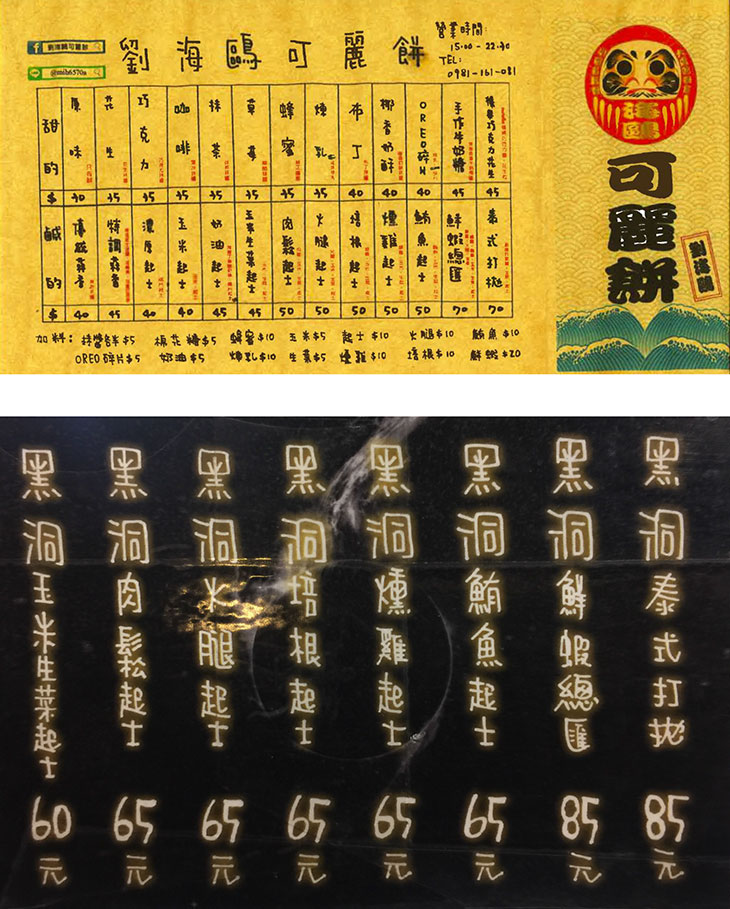 劉海鷗可麗餅
劉海鷗可麗餅
營業時間:
15:00-22:30
TEL:
0981-161-081
甜的
原味
花生
巧克力
咖啡
抹茶
草莓
蜂蜜
煉乳
布丁
椰香奶酥
OREO碎片
手作牛奶糖
榛果巧克力花生
$ 30 35 35 35 35 35 35 35 40 40 40 45 45
鹹的
蒜香
特調蒜香
濃厚起士
玉米起士
奶油起士
玉米生菜起士
肉鬆起士
火腿起士
培根起士
燻雞起士
鮪魚起士
鮮蝦總匯
泰式打拋
$ 40 45 40 40 45 45 50 50 50 50 50 70 70
加料: $5 棉花糖$5 蜂蜜$10 玉米$5 起士$10 火腿$10 鮪魚$10
OREO碎片$5 奶油$5 煉乳$10 生菜$5 燻雞$10 培根$10 鮮蝦$20
海鷗
可麗餅
劉海鷗
黑洞玉米生菜起士
60元
黑洞肉鬆起士
65元
黑洞火腿起士
65元
黑洞培根起士
65元
黑洞燻雞起士
65元
黑洞鮪魚起士
65元
黑洞鮮蝦總匯
85元
黑洞泰式打拋
85元